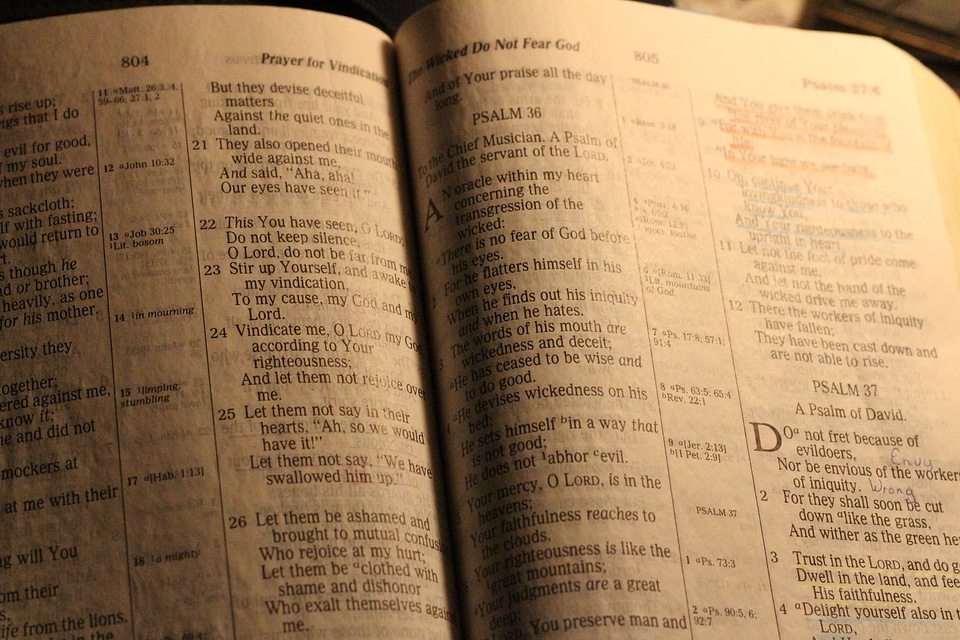 804
Prayer for Vindication
rise up;
things that I do
evil for good,
my soul.
when they were
sackcloth;
self with fasting;
would return to
as though he
heavily, as one
for his mother.
they
together;
against me,
know it;
me and did not
mockers at
at me with their
will You
from their
life from the lions.
11 aMatt. 26:3, 4,
59–66; 27:1, 2
12 aJohn 10:32
13 aJob 30:25
1Lit. bosom
14 1in mourning
15 1limping,
stumbling
17 a[Hab. 1:13]
18 1a mighty
But they devise deceitful
matters
Against the quiet ones in the
land.
21 They also opened their mouth
wide against me,
And said, “Aha, aha!
Our eyes have seen it.”
22 This You have seen, O LORD;
Do not keep silence.
O Lord, do not be far from me.
23 Stir up Yourself, and awake
my vindication,
To my cause, my God and my
Lord.
24 Vindicate me, O LORD my God,
according to Your
righteousness;
And let them not rejoice over
me.
25 Let them not say in their
hearts, “Ah, so we would
have it!”
Let them not say, “We have
swallowed him up.”
26 Let them be ashamed and
brought to mutual confusion
Who rejoice at my hurt;
Let them be aclothed with
shame and dishonor
Who exalt themselves against
me.
The Wicked Do Not Fear God
805
Psalm 37:4
And of Your praise all the day
long.
PSALM 36
To the Chief Musician. A Psalm of
David the servant of the LORD.
AN oracle within my heart
concerning the
transgression of the
wicked:
aThere is no fear of God before
his eyes.
For he flatters himself in his
own eyes,
When he finds out his iniquity
and when he hates.
The words of his mouth are
wickedness and deceit;
aHe has ceased to be wise and
to do good.
aHe devises wickedness on his
bed;
He sets himself bin a way that
is not good;
He does not 1abhor cevil.
Your mercy, O LORD, is in the
heavens;
Your faithfulness reaches to
the clouds.
Your righteousness is like the
1great mountains;
aYour judgments are a great
deep;
O LORD, You preserve man and
6 a[Rom. 11:33]
1Lit. mountains
of God
7 aPs. 17:8; 57:1;
91:4
8 aPs. 63:5; 65:4
bRev. 22:1
9 a[Jer. 2:13]
b[1 Pet. 2:9]
PSALM 37
1 aPs. 73:3
2 aPs. 90:5, 6;
92:7
9
bIn Your light we see light.
10 Oh, continue Your
lovingkindness to those who
know You,
And Your righteousness to the
upright in heart.
11 Let not the foot of pride come
against me,
And let not the hand of the
wicked drive me away.
12 There the workers of iniquity
have fallen;
They have been cast down and
are not able to rise.
PSALM 37
A Psalm of David.
DOa not fret because of
evildoers,
Envy
Nor be envious of the workers
of iniquity.
Wrong
2 For they shall soon be cut
down alike the grass,
And wither as the green
3 Trust in the LORD, and do
Dwell in the land, and feed
His faithfulness.
4 aDelight yourself also in
LORD,